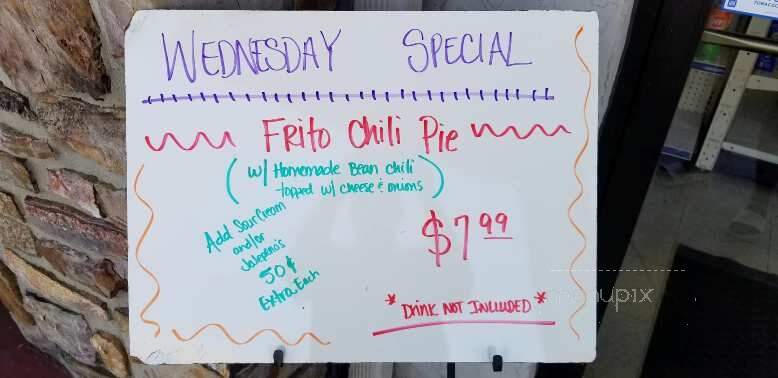 WEDNESDAY SPECIAL
Frito Chili Pie
(w/ Homemade Bean chili
topped w/ cheese & onions)
Add Sour Cream
and/or
Jalepeno's
50¢
Extra Each
$7 99
*Drink NOT INCLUDED*
menupix